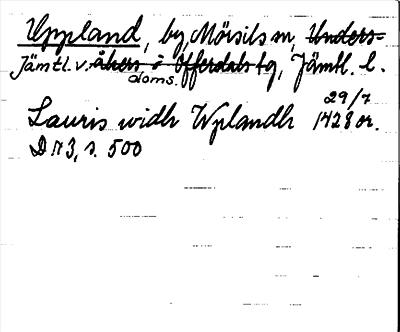 Uppland, by, Mörsils sn, Unders-
Jämtl. v. åkers o Offerdals tg, Jämtl. l.
doms.
29/7
Lauris widh Wplandh 1428 or.
D n 3, s. 500